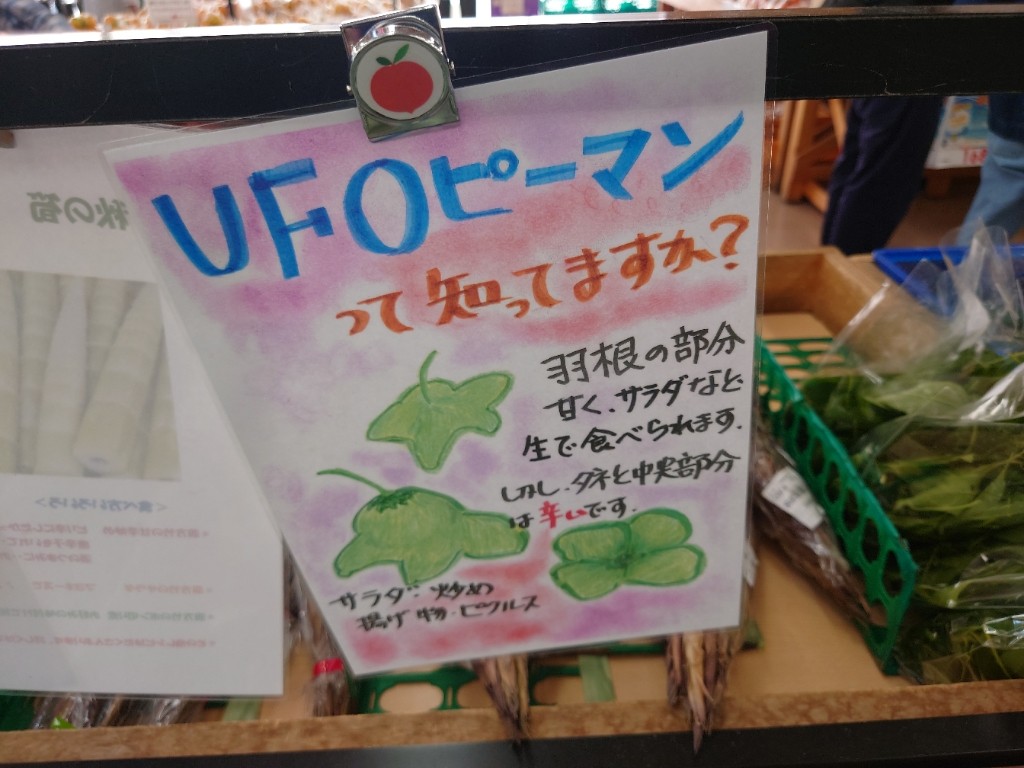 UFOピーマン
って知ってますか?
羽根の部分
甘く、サラダなど
生で食べられます。
しかし、タネと中実部分
は辛いです。
サラダ・炒め
揚げ物・ピクルス
秋の筍
<食べ方いろいろ>